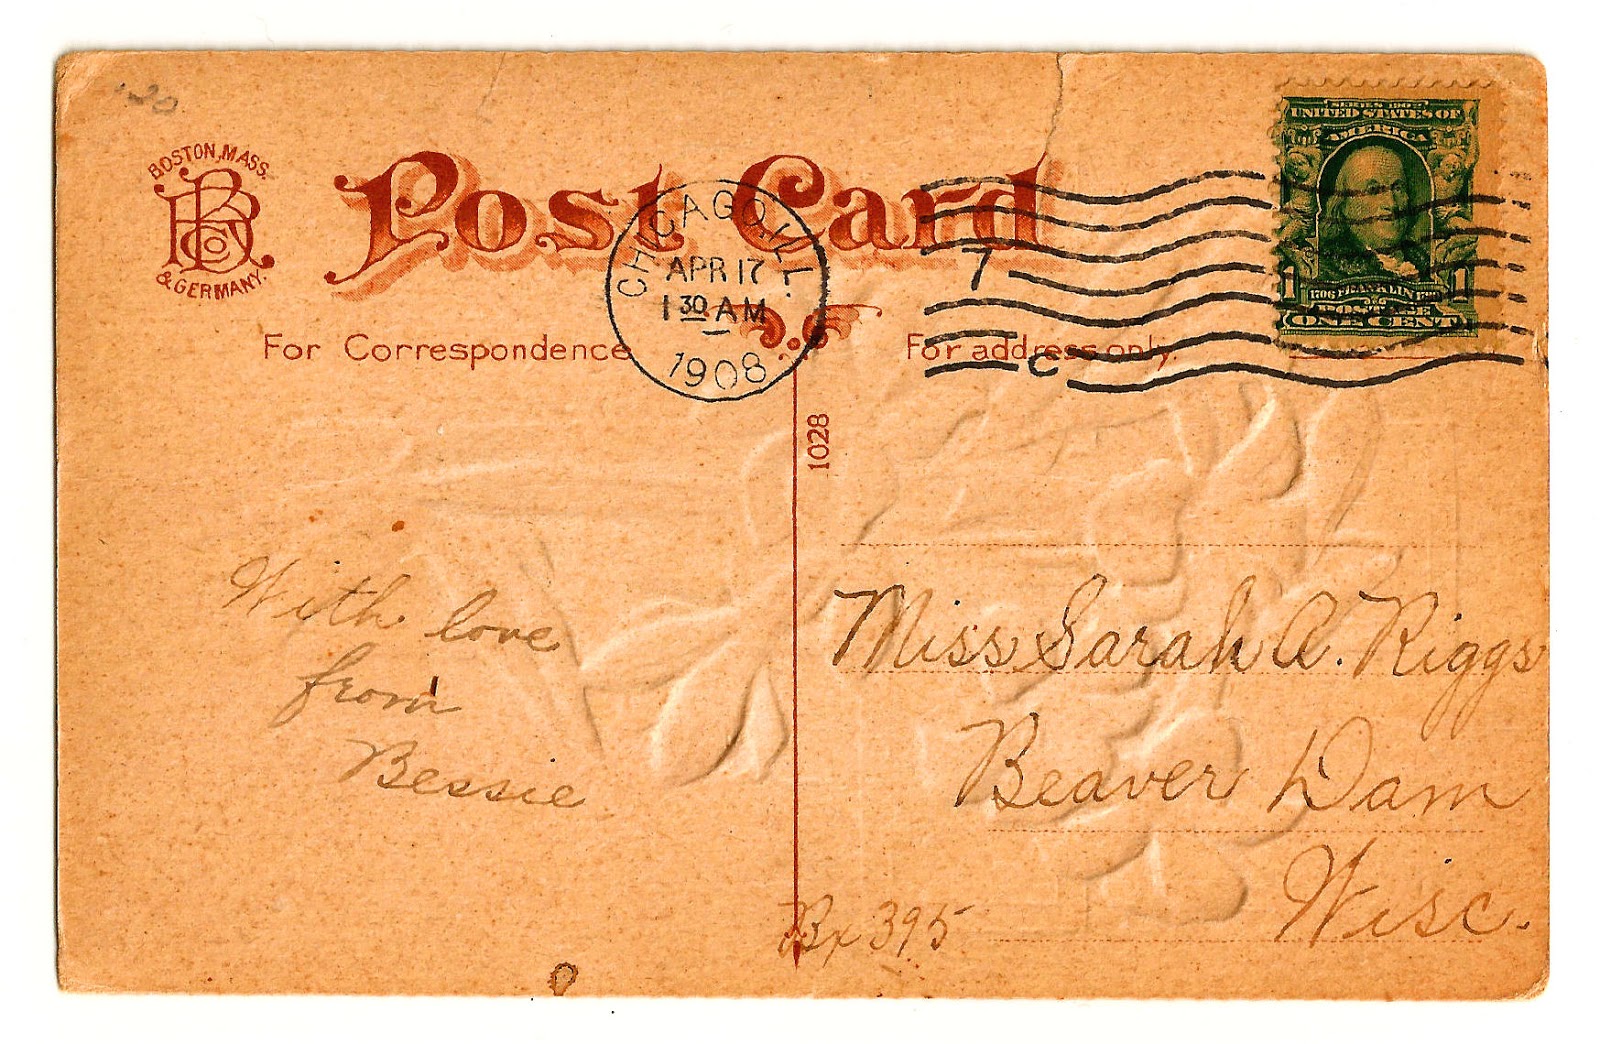 20
BOSTON, MASS.
& GERMANY.
Post Card
CHICAGO, ILL.
APR 17
1 30 AM
1908
7
C
SERIES 1902
UNITED STATES OF
AMERICA
1 1
1706 FRANKLIN 1790
POSTAGE
ONE CENT
For Correspondence
For address only.
1028
With love
from
Bessie
Miss Sarah A. Riggs
Beaver Dam
Wisc.
Bx 395